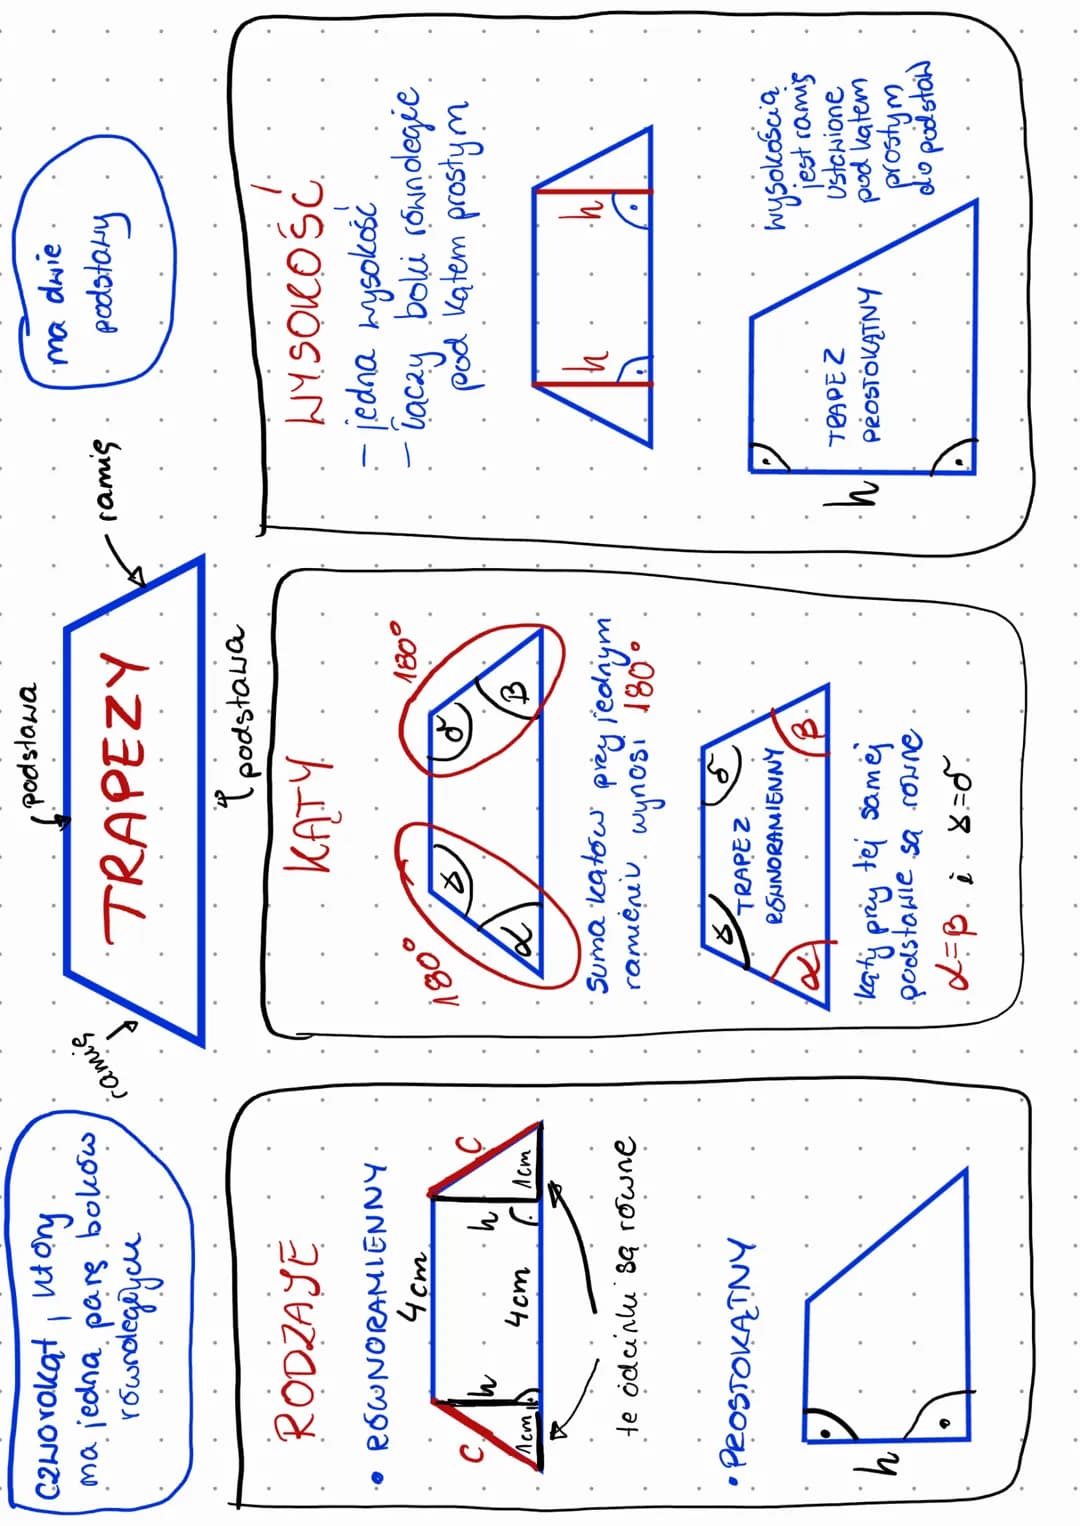 czworokąt, który
ma jedną parę boków
równoległych
podstawa
ramię
TRAPEZY
ramię
podstawa
ma dwie
podstawy
RODZAJE
• RÓWNORAMIENNY
4cm
c
h
h
c
1cm
4cm
1cm
te odcinki są równe
• PROSTOKĄTNY
h
KĄTY
180°
180°
γ
δ
α
β
suma kątów przy jednym
ramieniu wynosi 180°
γ
δ
TRAPEZ
RÓWNORAMIENNY
α
β
kąty przy tej samej
podstawie są równe
α=β i γ=δ
WYSOKOŚĆ
- jedna wysokość
- łączy boki równoległe
pod kątem prostym
h
h
h
TRAPEZ
PROSTOKĄTNY
wysokością
jest ramię
ustawione
pod kątem
prostym
do podstaw